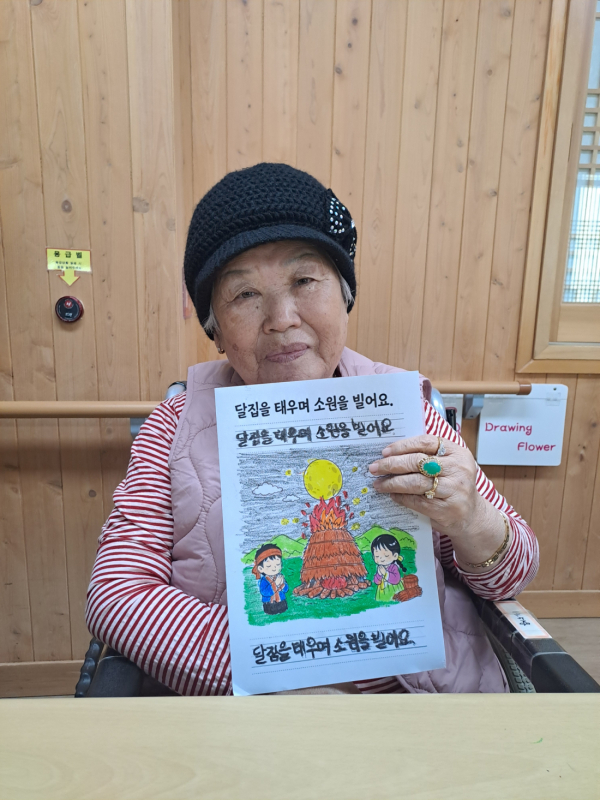 응급벨
달집을 태우며 소원을 빌어요.
달집을 태우며 소원을 빌어요
Drawing
Flower
달집을 태우며 소원을 빌어요.